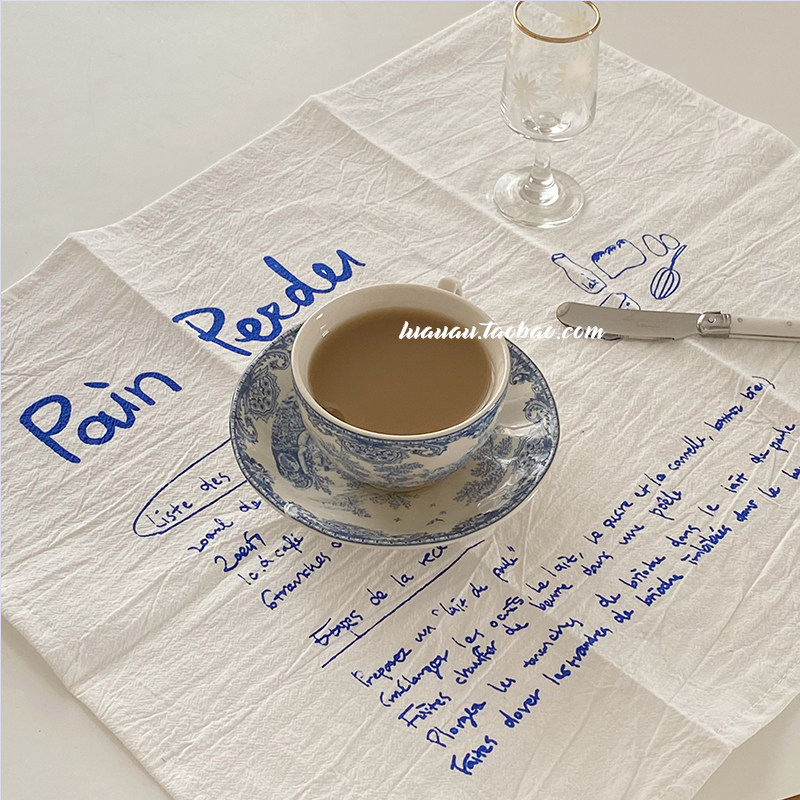 Pain Perdu
luauau.taobao.com
Liste des
200ml de
2oeufs
1c.à café
6tranches
Etapes de la rec
Preparez un "lait de poule"
(mélanger les oeufs, le lait, le sucre et la cannelle, battre bien)
Faites chauffer de beurre dans une poêle
Plongez les tranches de brioche dans le lait de poule
Faites dorer les tranches de brioche imbibées dans le